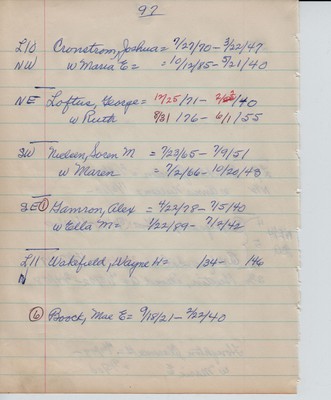 97
L10 Cronstrom, Joshua = 7/27/70 - 3/22/47
NW w Maria E = = 10/12/85 - 5/21/40
NE Loftus, George = 12/25/71 - /40
w Ruth 8/31/76 - 6/1/55
SW Nielsen, Soren M = 7/23/65 - 7/9/51
w Maren = 7/2/66 - 10/20/48
SE ① Gamron, Alex = 4/22/78 - 7/5/40
w Ella M = 1/22/89 - 7/9/42
L11 Wakefield, Wayne H = /34 - /46
N
⑥ Boock, Mae E = 9/18/21 - 2/22/40